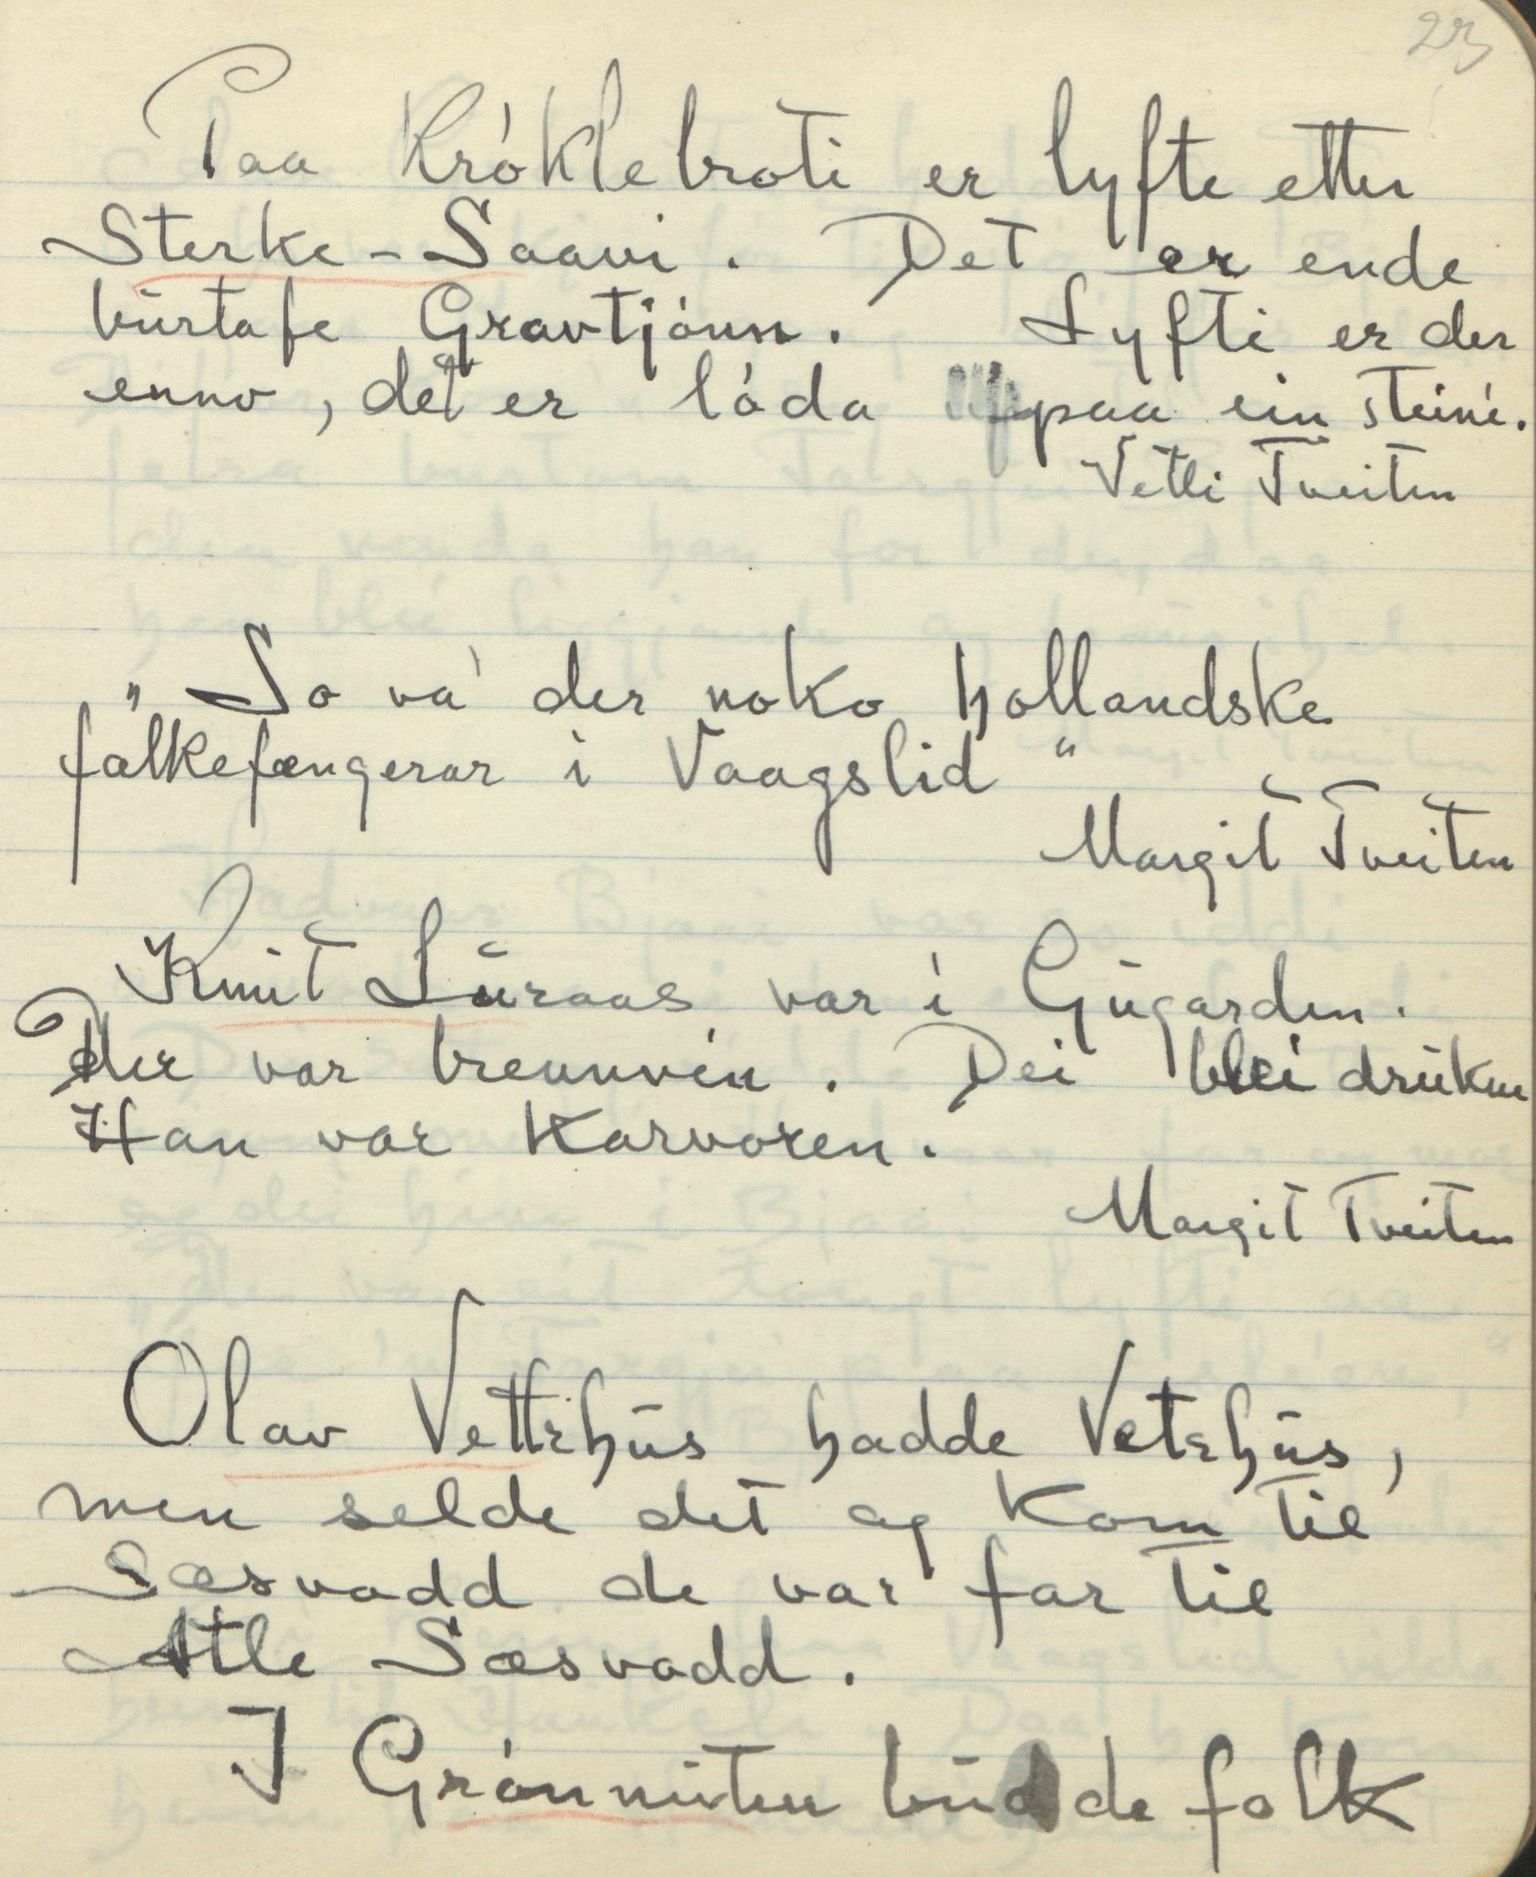 23
Paa Króklebroti er lyfte etter
Sterke-Saavi. Det er ende
burtafe Gravtjónn. Lyfti er der
enno, det er lóda paa ein steini.
Vetli Tveiten
„So va' der noko hollandske
falkefængerar i Vaagslid"
Margit Tveiten
Knut Luraas var i Gugarden.
Der var brennvin. Dei blei drukne
Han var Karvoren.
Margit Tveiten
Olav Vettrhus hadde Vetrhus,
men selde det og Kom til
Sæsvadd de var far til
Atle Sæsvadd.
I Grónnuten budde folk